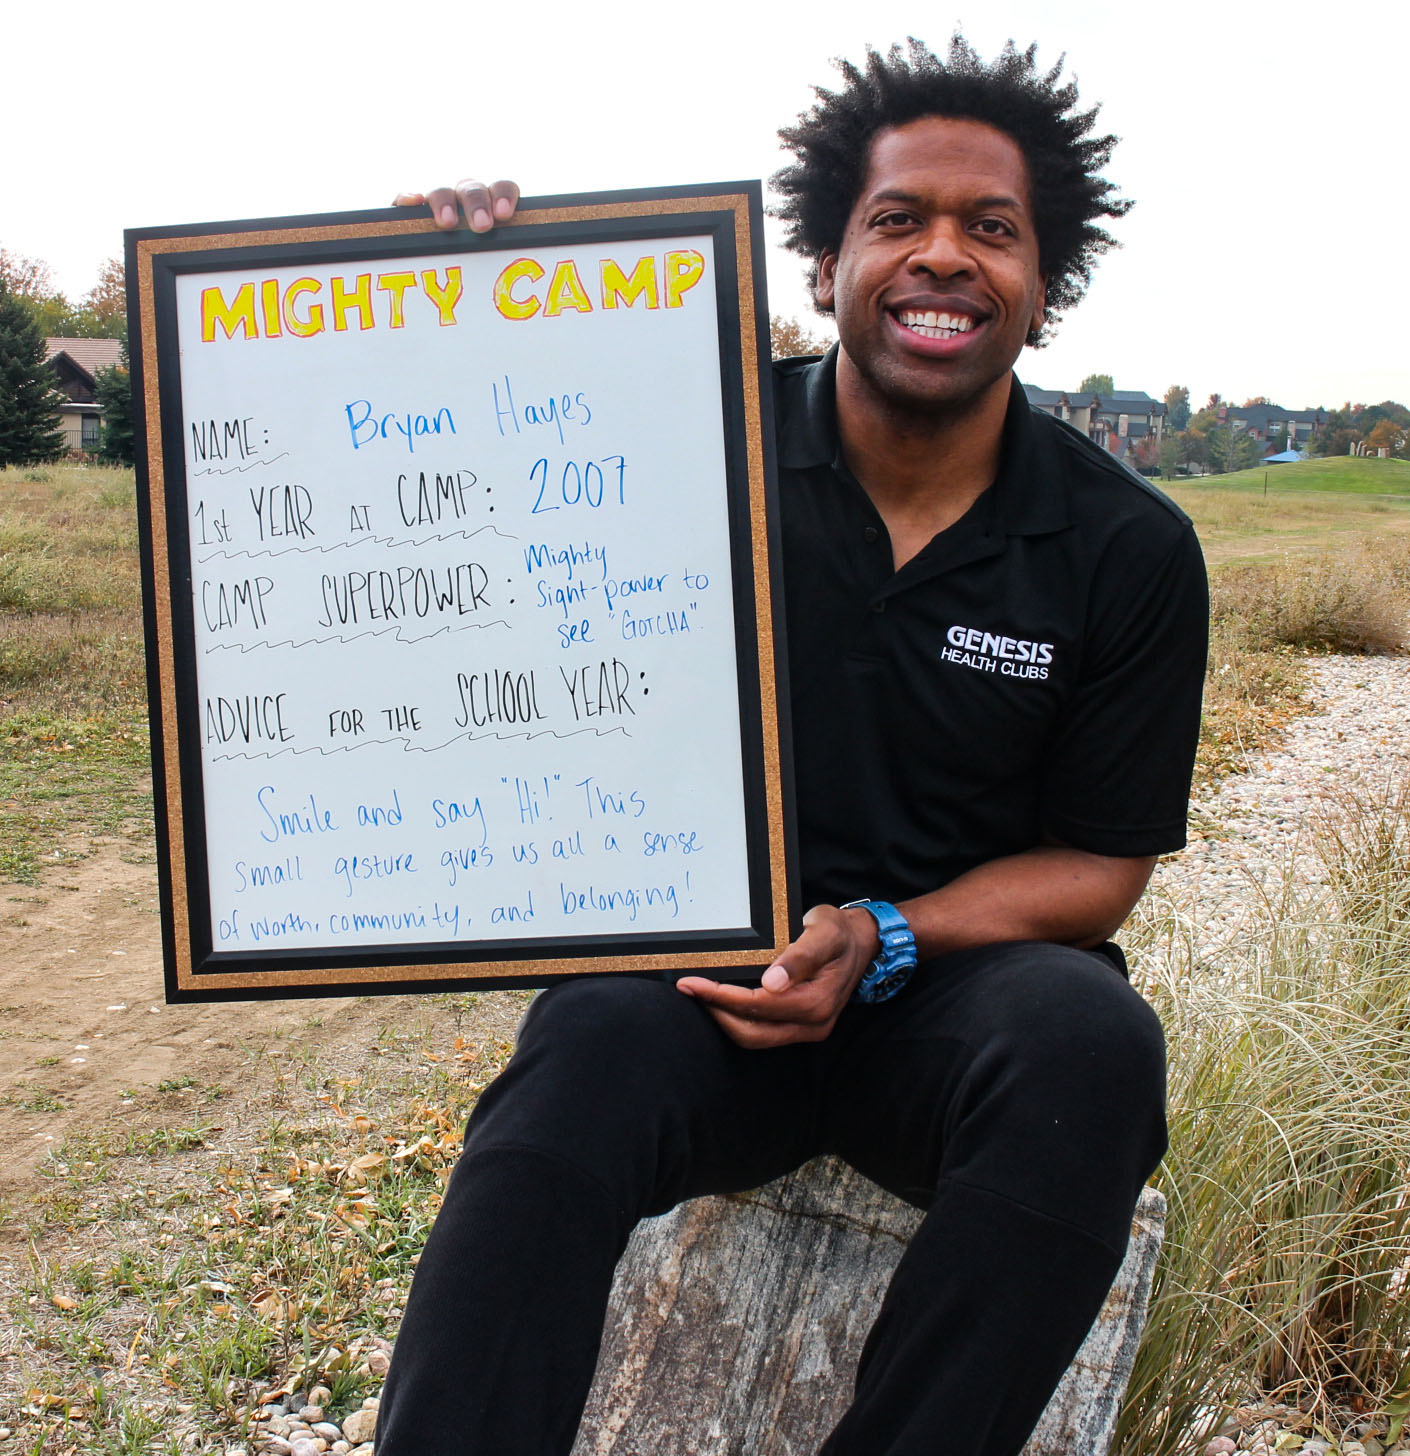 MIGHTY CAMP
NAME: Bryan Hayes
1st YEAR AT CAMP: 2007
CAMP SUPERPOWER: Mighty
Sight-power to
see "GOTCHA".
ADVICE FOR THE SCHOOL YEAR:
Smile and say "Hi!" This
small gesture gives us all a sense
of worth, community, and belonging!
GENESIS
HEALTH CLUBS